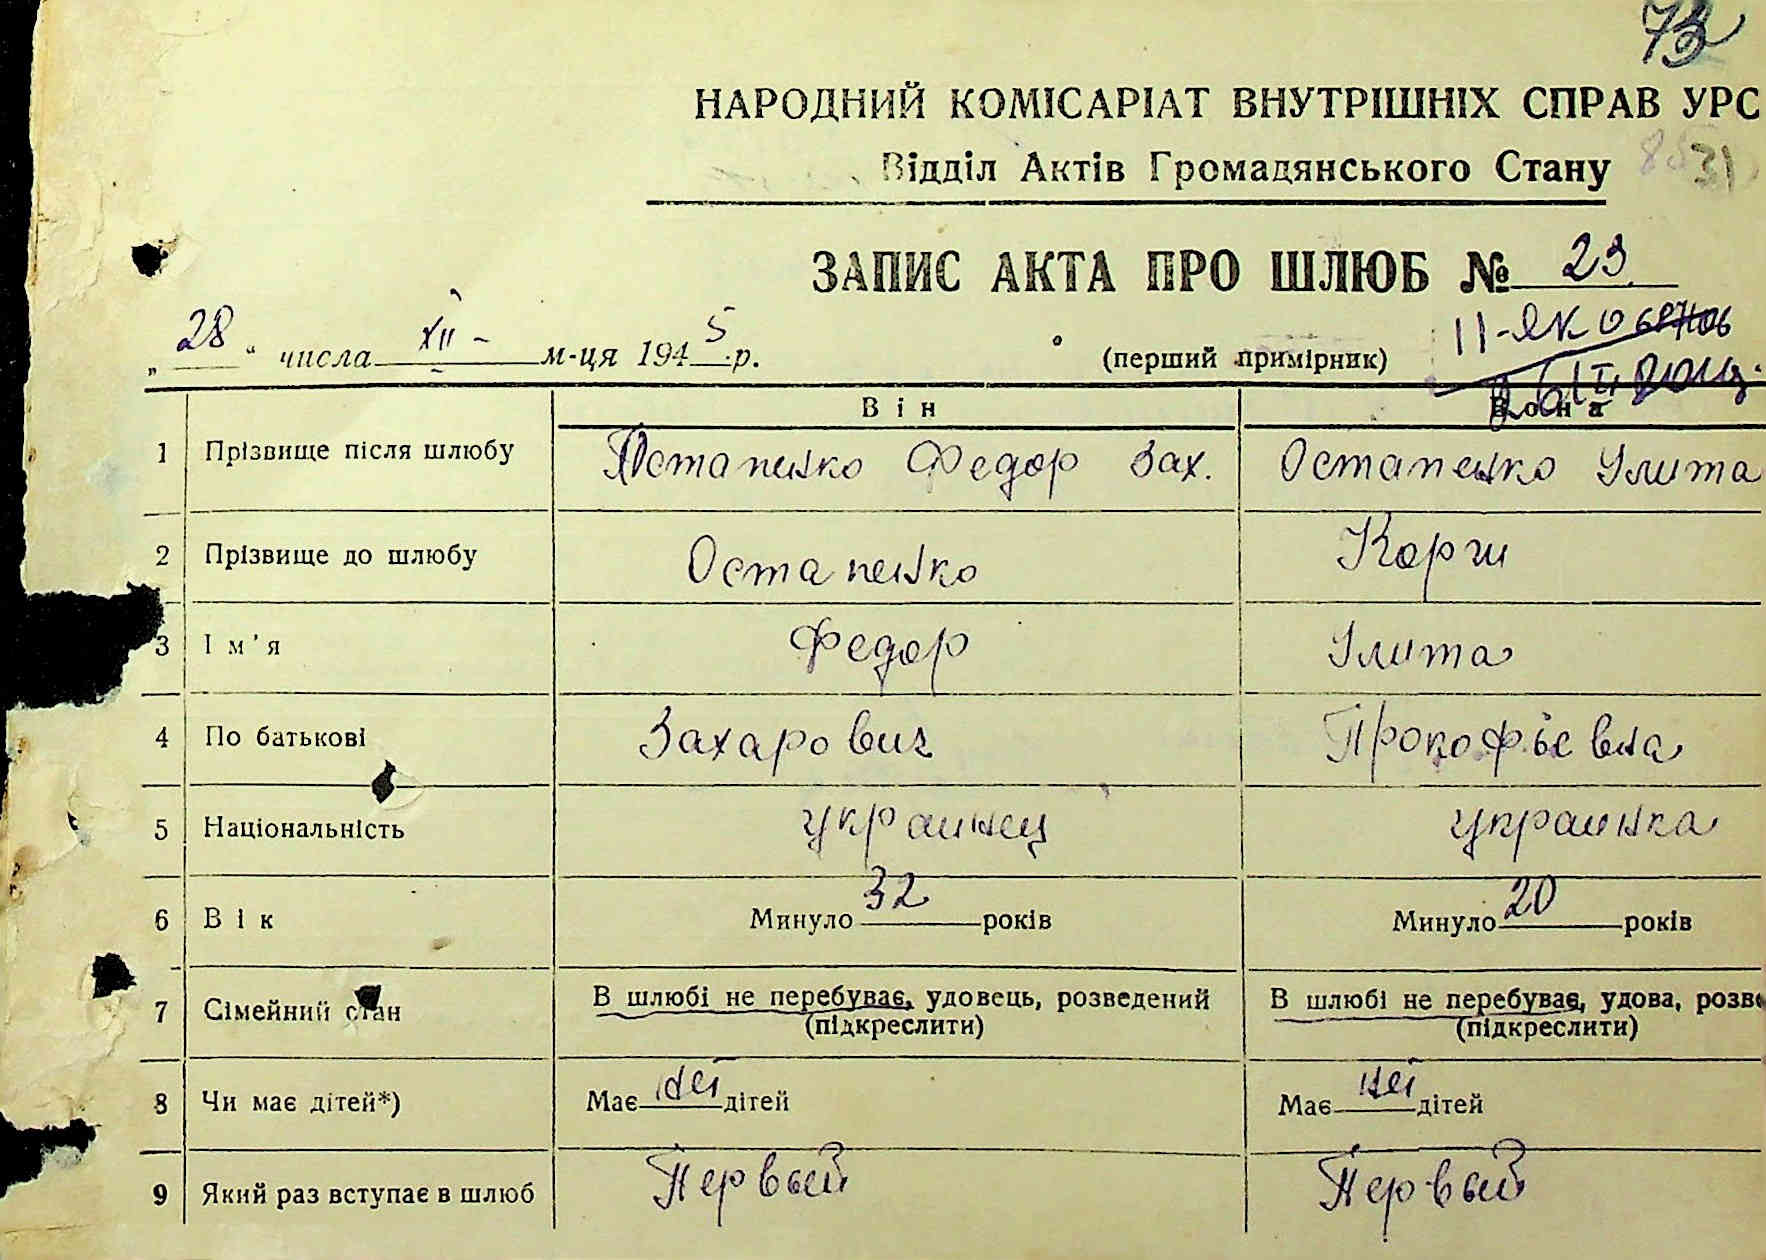 73
НАРОДНИЙ КОМІСАРІАТ ВНУТРІШНІХ СПРАВ УРС
Відділ Актів Громадянського Стану
31
ЗАПИС АКТА ПРО ШЛЮБ № 23
„ 28 “ числа XII - м-ця 1945 р. (перший примірник)
II-ЯК
Він Вона
1 Прізвище після шлюбу Остапенко Федор Зах. Остапенко Улита
2 Прізвище до шлюбу Остапенко Корж
3 Ім'я Федор Улита
4 По батькові Захарович Прокофьевна
5 Національність украинец украинка
6 Вік Минуло 32 років Минуло 20 років
7 Сімейний стан В шлюбі не перебуває, удовець, розведений В шлюбі не перебуває, удова, розве
(підкреслити) (підкреслити)
8 Чи має дітей*) Має нет дітей Має нет дітей
9 Який раз вступає в шлюб Первый Первый